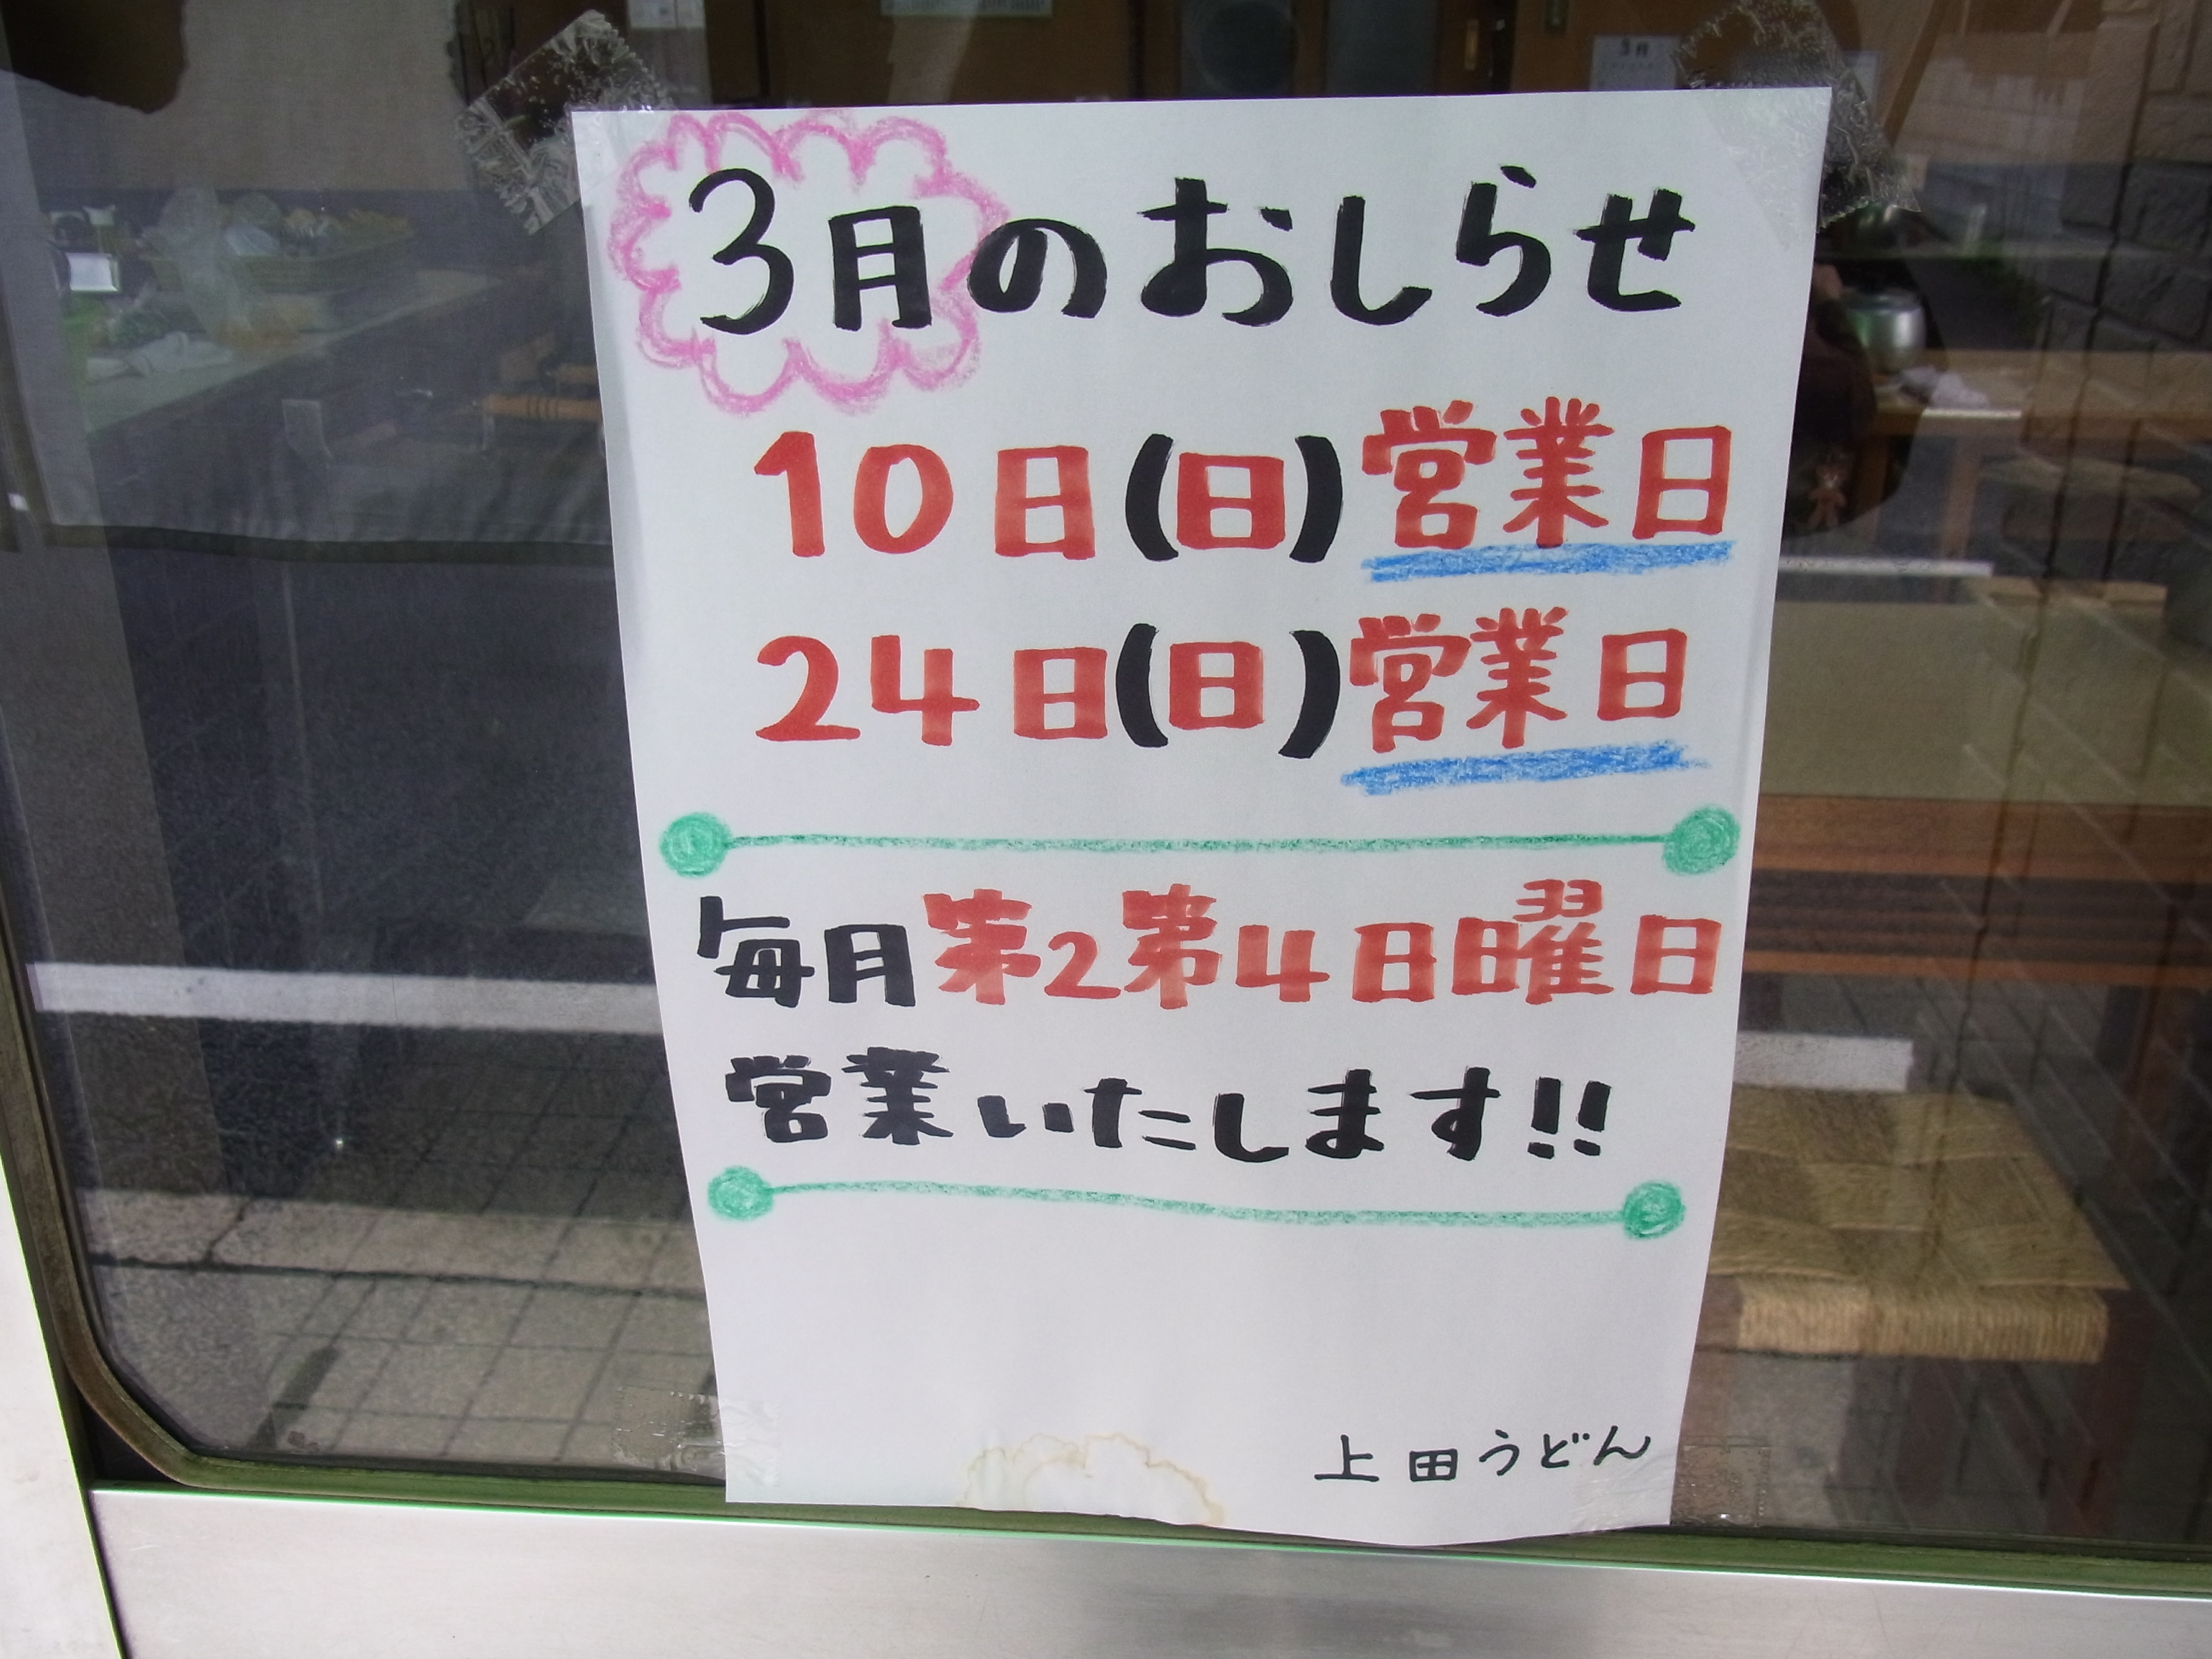 3月のおしらせ
10日(日)営業日
24日(日)営業日
毎月第2第4日日曜日
営業いたします!!
上田うどん
3月